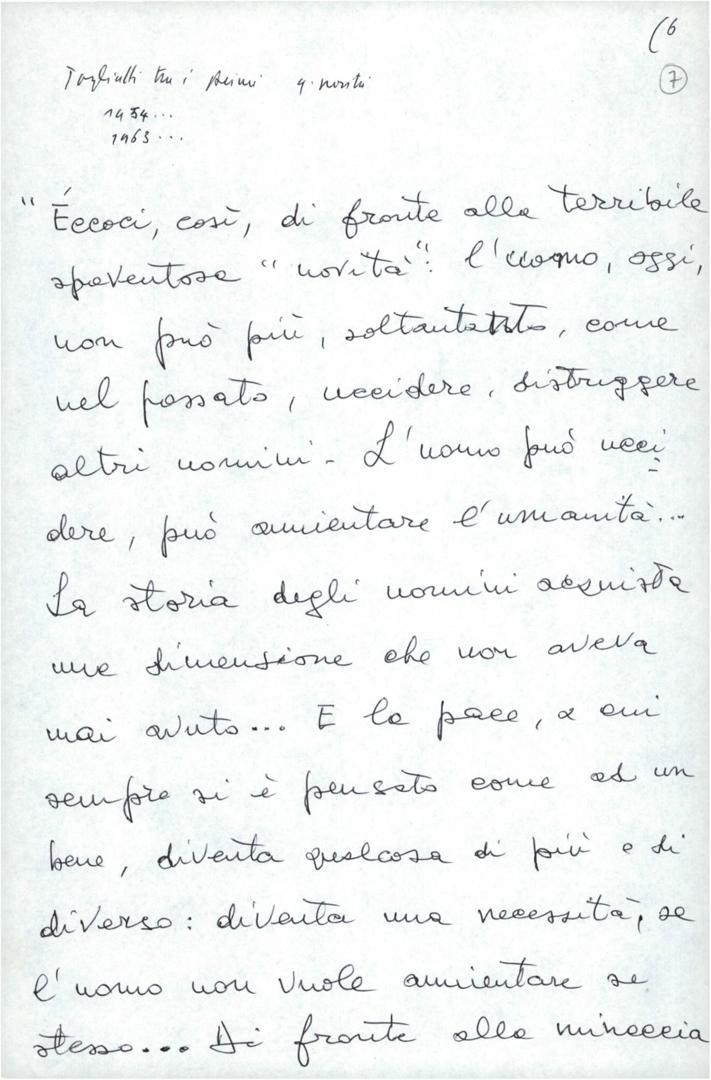 (6
7
Togliatti tra i primi q. novità
1954...
1963...
" Eccoci, così, di fronte alla terribile
spaventosa "novità": l'uomo, oggi,
non può più, soltanto, come
nel passato, uccidere, distruggere
altri uomini - L'uomo può ucci
dere, può annientare l'umanità...
La storia degli uomini acquista
una dimensione che non aveva
mai avuto... E la pace, a cui
sempre si è pensato come ad un
bene, diventa qualcosa di più e di
diverso: diventa una necessità, se
l'uomo non vuole annientare se
stesso... Di fronte alla minaccia